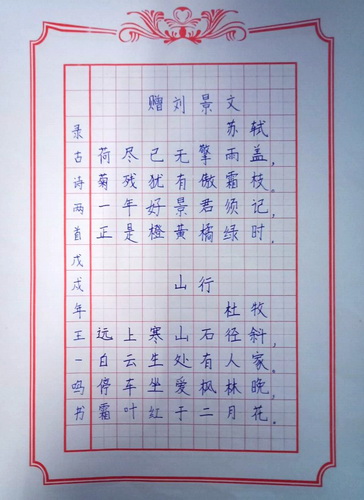 赠刘景文
苏轼
荷尽已无擎雨盖，
菊残犹有傲霜枝。
一年好景君须记，
正是橙黄橘绿时。
山行
杜牧
远上寒山石径斜，
白云生处有人家。
停车坐爱枫林晚，
霜叶红于二月花。
录古诗两首戊戌年王一鸣书